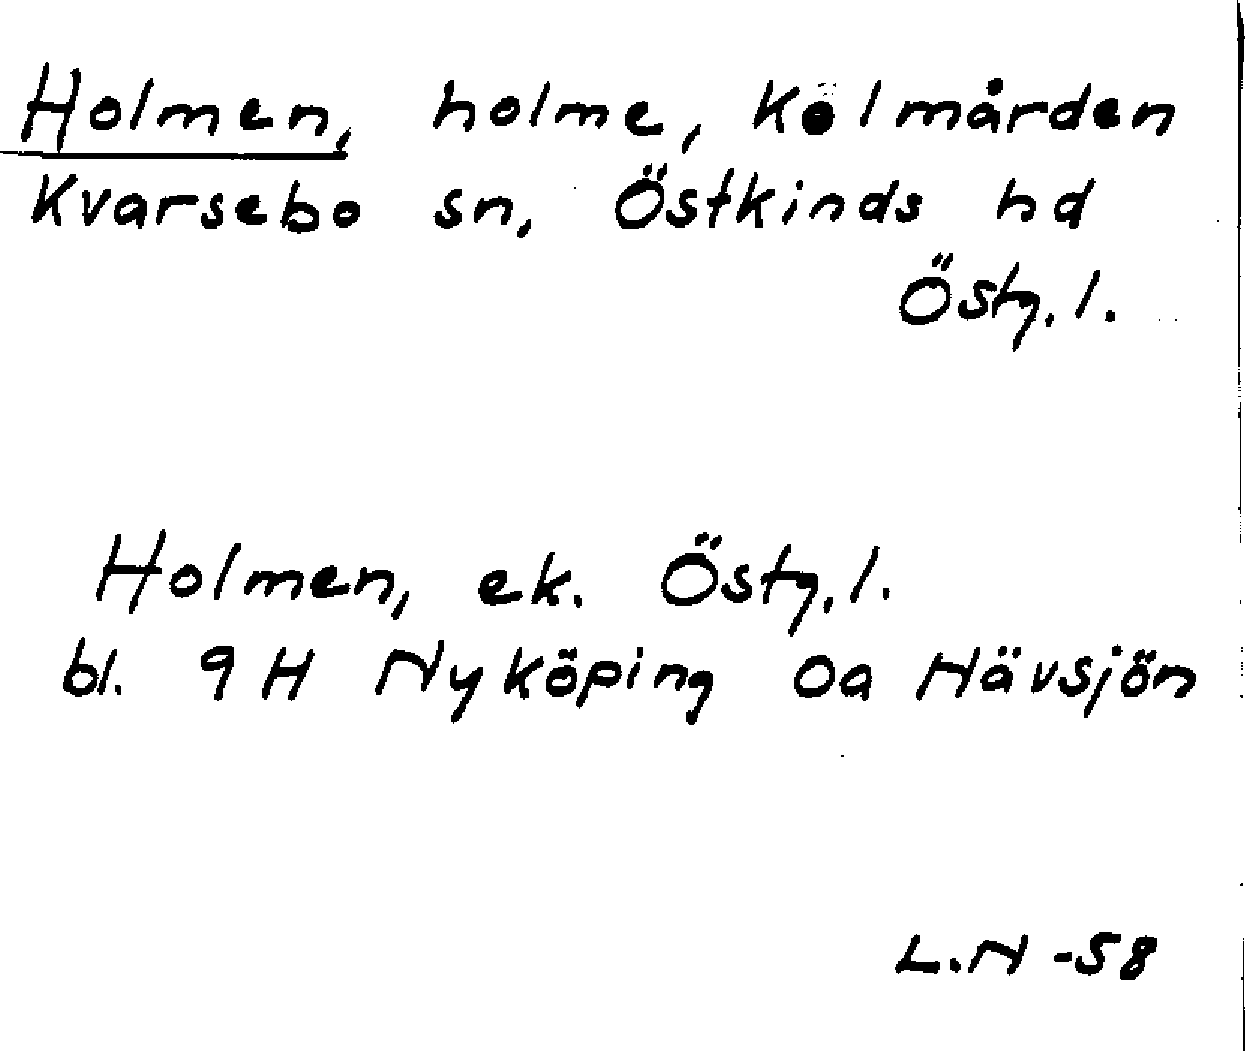 Holmen, holme, Kolmården
Kvarsebo sn, Östkinds hd
Östg. l.
Holmen, ek. Östg. l.
bl. 9 H Nyköping 0a Nävsjön
L.N -58